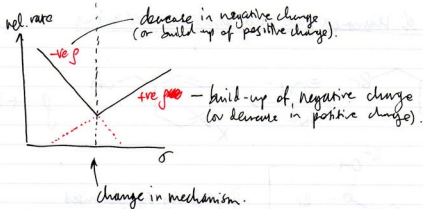 rel. rate
decrease in negative change
(or build up of positive change).
-ve ρ
+ve ρ
– build-up of negative charge
(or decrease in positive charge).
σ
change in mechanism.